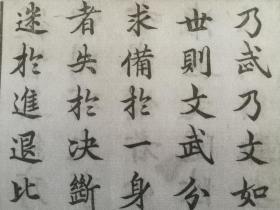 乃武乃文如
世則文武分
求備於一身
者失於决斷
迷於進退比